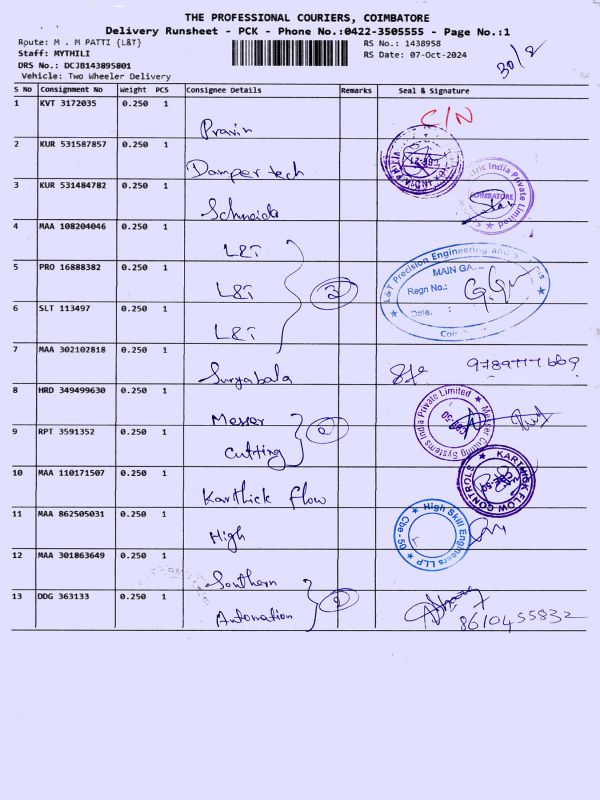 THE PROFESSIONAL COURIERS, COIMBATORE
Delivery Runsheet - PCK - Phone No.:0422-3505555 - Page No.:1
Route: M . M PATTI {L&T}
Staff: MYTHILI
DRS No.: DCJB143895801
Vehicle: Two Wheeler Delivery
RS No.: 1438958
RS Date: 07-Oct-2024
30/2
S No Consignment No Weight PCS Consignee Details Remarks Seal & Signature
1 KVT 3172035 0.250 1 Pravin C/N
2 KUR 531587857 0.250 1 Dampertech
3 KUR 531484782 0.250 1 Schneide
COIMBATORE
4 MAA 108204046 0.250 1 L&T
5 PRO 16888382 0.250 1 L&T 3
L&T Precision Engineering and
MAIN GA
Regn No.:
Date. :
6 SLT 113497 0.250 1 L&T
7 MAA 302102818 0.250 1 Suryabala 9789777669
8 HRD 349499630 0.250 1 Messer
Messer Cutting Systems India Private Limited
9 RPT 3591352 0.250 1 Cutting 2
10 MAA 110171507 0.250 1 Karthick Flow
KARTHICK FLOW CONTROLS
11 MAA 862505031 0.250 1 High
High Skill Engineers LLP Cbe-50
12 MAA 301863649 0.250 1 Southern
13 DDG 363133 0.250 1 Automation 2 8610455832